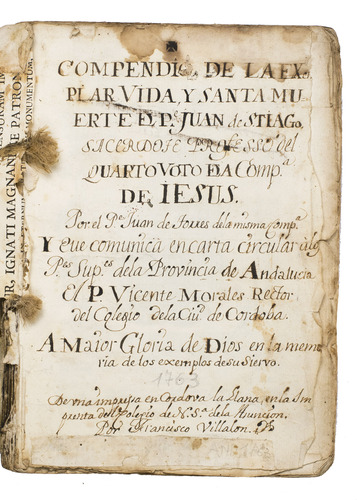 COMPENDIO DE LA EXE
PLAR VIDA, Y SANTA MU
ERTE D. Pe. JUAN de STIAGO,
SACERDOTE PROFESSO del
QUARTO VOTO D LA Comp.a
DE IESUS.
Por el Pe. Juan de Torres de la misma Comp.a
Y que comunica en carta circular a los
Pes Supes. de la Provincia de Andalucia
El P. Vicente Morales Rector
del Colegio de la Ciud. de Cordoba.
A Maior Gloria de Dios en la memo
ria de los exemplos de su Siervo.
1763
De una impresa en Cordova la Llana, en la Im
prenta del Colegio de N. Sa. de la Asuncion.
Por Francisco Villalon.
R. IGNATI MAGNANI DE PATRON
MONUMENTUM,